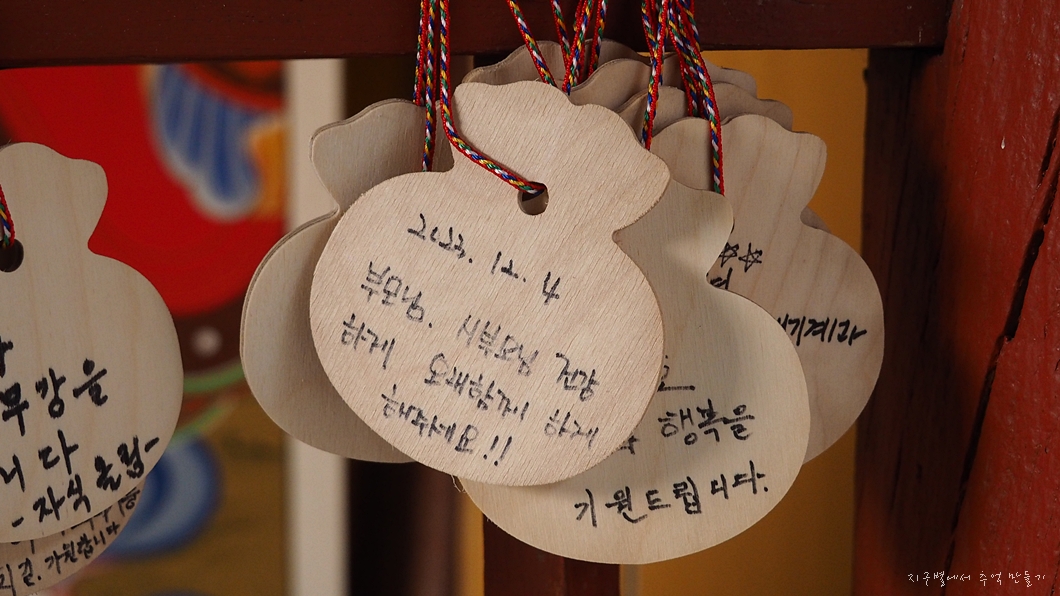 2023. 12. 4
부모님. 시부모님 건강
하게 오래함께 하게
해주세요!!
행복을
기원드립니다.
기계라
무강을
니다
- 자식 올림-
길. 기원합니다
지구별에서 추억 만들기